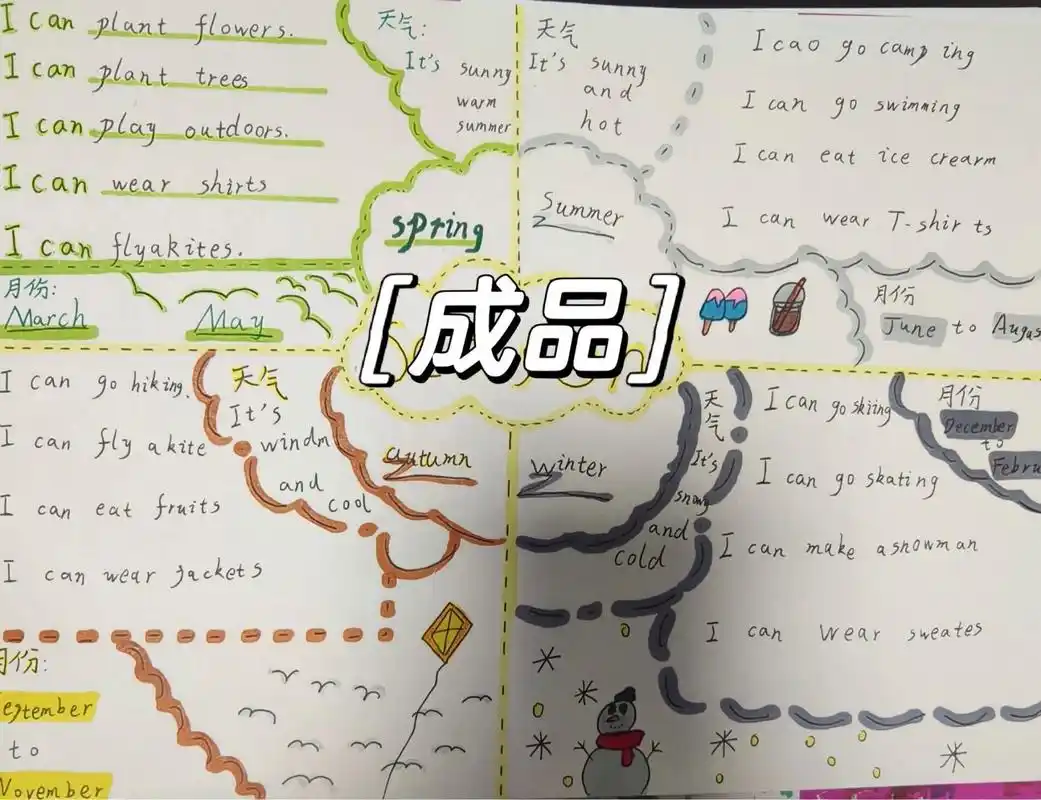 I can plant flowers.
I can plant trees
I can play outdoors.
I can wear shirts
I can flyakites.
天气:
It's sunny
warm
summer
spring
月份:
March
May
天气
It's sunny
and
hot
Summer
I cao go camp ing
I can go swimming
I can eat ice crearm
I can wear T-shirts
月份
June to Augus
[成品]
I can go hiking.
I can fly akite
I can eat fruits
I can wear jackets
天气
It's
windm
and
cool
autumn
月份:
eptember
to
November
winter
天气
It's
snowy
and
cold
I can go skiing
I can go skating
I can make asnowman
I can wear sweates
月份
December
to
Febru